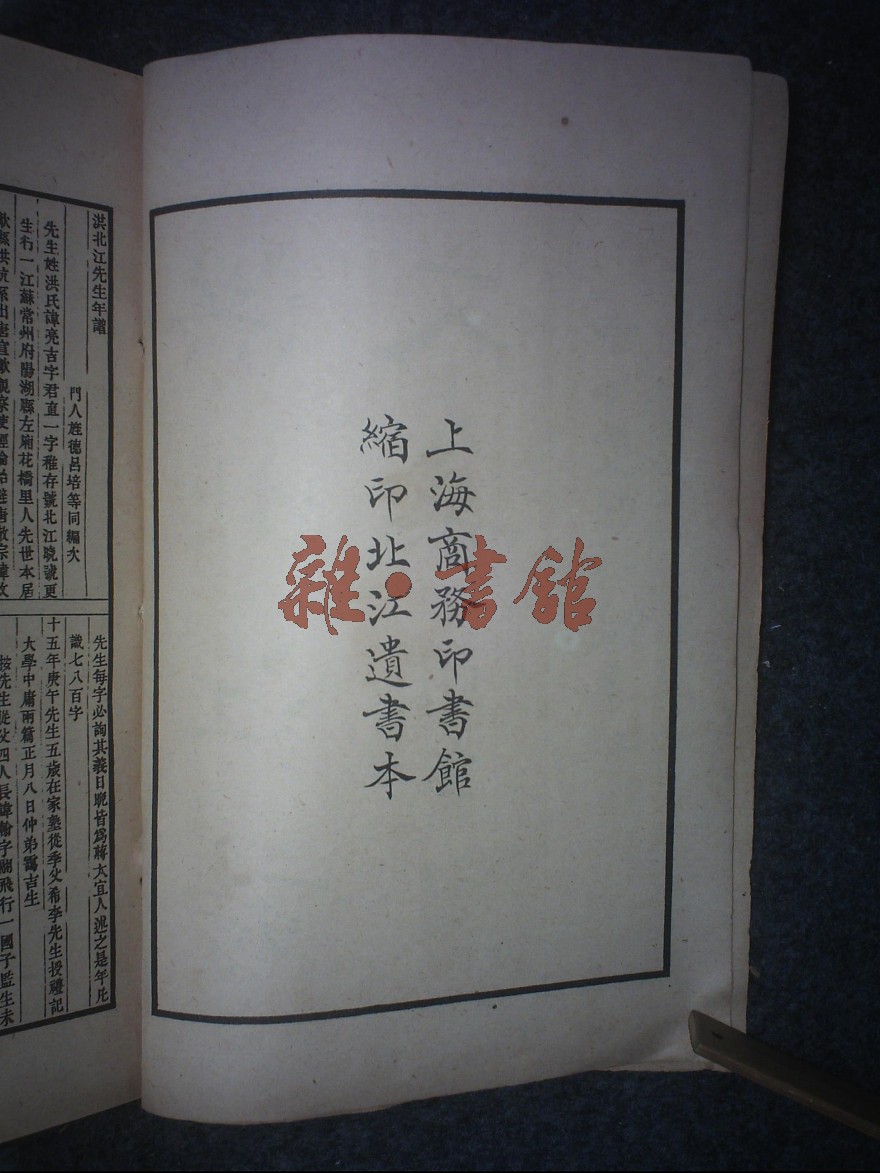 上海商務印書館
縮印北江遺書本
雜·書館
洪北江先生年譜
門人旌德呂培等同編次
先生姓洪氏諱亮吉字君直一字稚存號北江晚號更
生行一江蘇常州府陽湖縣左廂花橋里人先世本居
歙縣洪坑系出唐宣歙觀察使經綸始避唐敬宗諱改
先生每字必詢其義日晚皆爲蔣太宜人述之是年凡
識七八百字
十五年庚午先生五歲在家塾從季父希李先生授禮記
大學中庸兩篇正月八日仲弟靄吉生
按先生從父四人長諱翰字
飛行一國子監生未